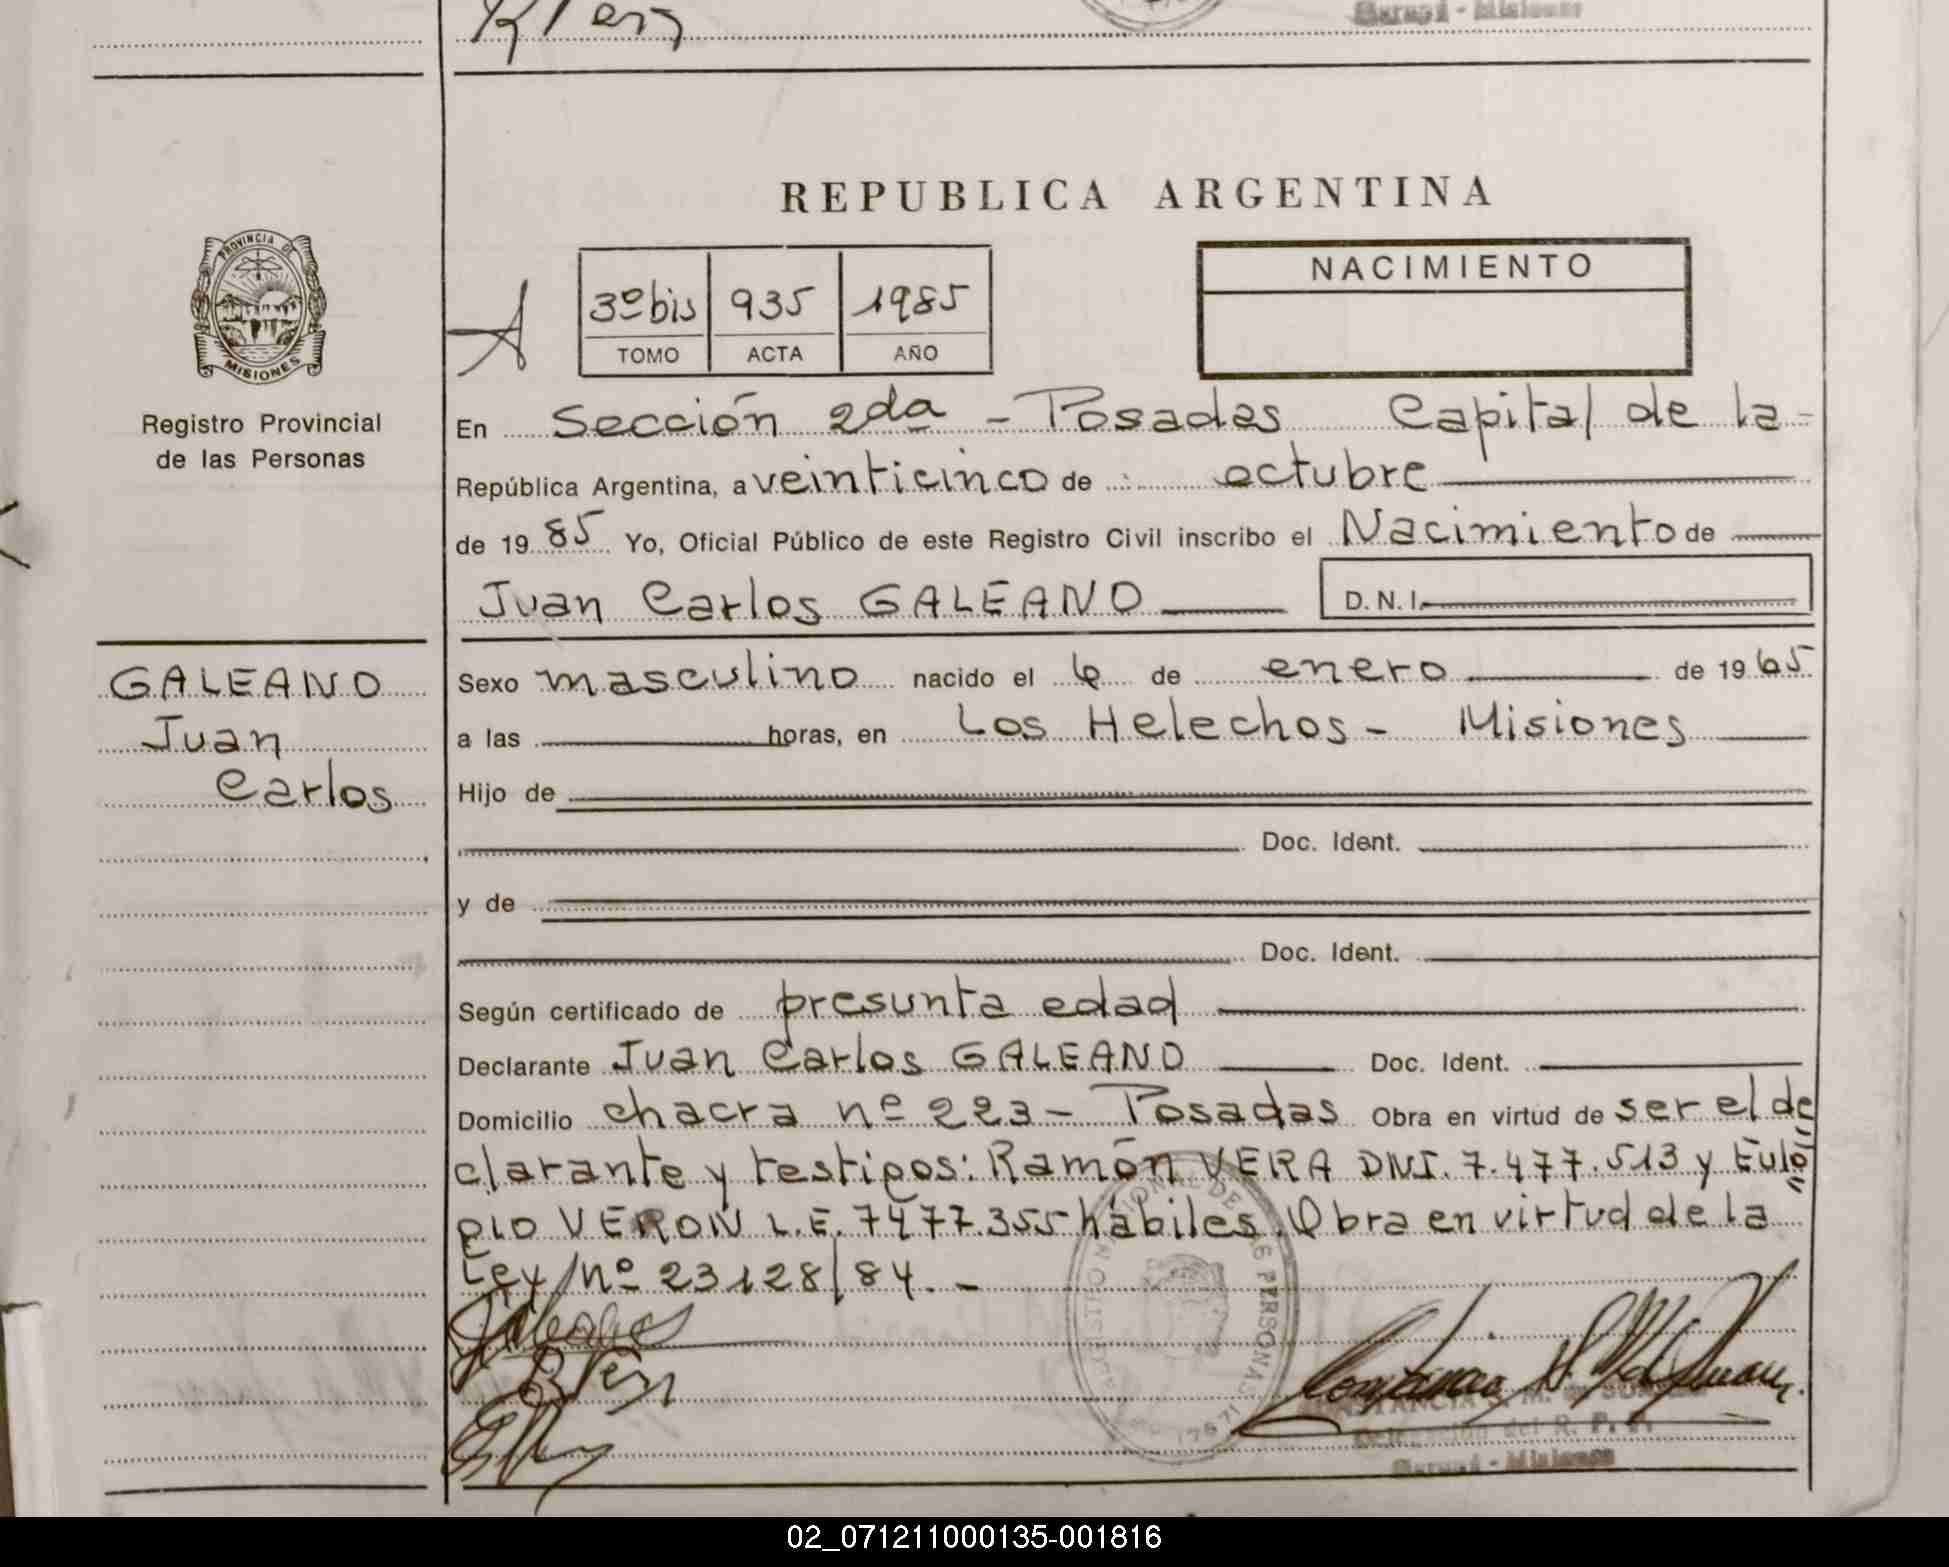 REPUBLICA ARGENTINA
PROVINCIA DE
MISIONES
Registro Provincial
de las Personas
A
3º bis 935 1985
TOMO ACTA AÑO
NACIMIENTO
En Sección 2da - Posadas Capital de la
República Argentina, a veinticinco de octubre
de 1985 Yo, Oficial Público de este Registro Civil inscribo el Nacimiento de
Juan Carlos GALEANO D.N.I.
GALEANO
Juan
Carlos
Sexo masculino nacido el 6 de enero de 1965
a las horas, en Los Helechos - Misiones
Hijo de
Doc. Ident.
y de
Doc. Ident.
Según certificado de presunta edad
Declarante Juan Carlos GALEANO Doc. Ident.
Domicilio chacra nº 223 - Posadas Obra en virtud de ser el de
clarante y testigos: Ramón VERA DNI. 7.477.513 y Eulo
gio VERON L.E. 7477.355 hábiles. Obra en virtud de la
Ley nº 23128/84. -
Delegación del R. P. P.
Misiones
02_071211000135-001816